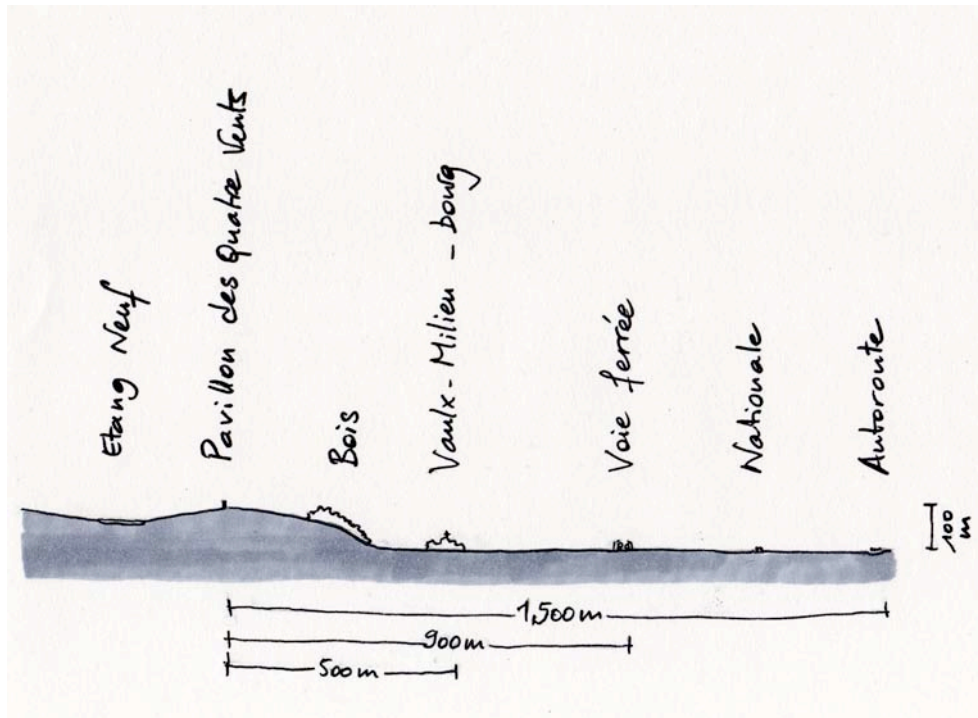 Etang Neuf
Pavillon des Quatre Vents
Bois
Vaulx-Milien - bourg
Voie ferrée
Nationale
Autoroute
100 m
1,500m
900m
500m